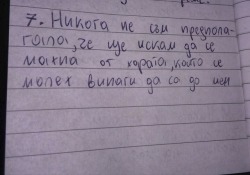 7. Никога не съм предпола-
гала, че ще искам да се
махна от хората, които се
молех винаги да са до мен